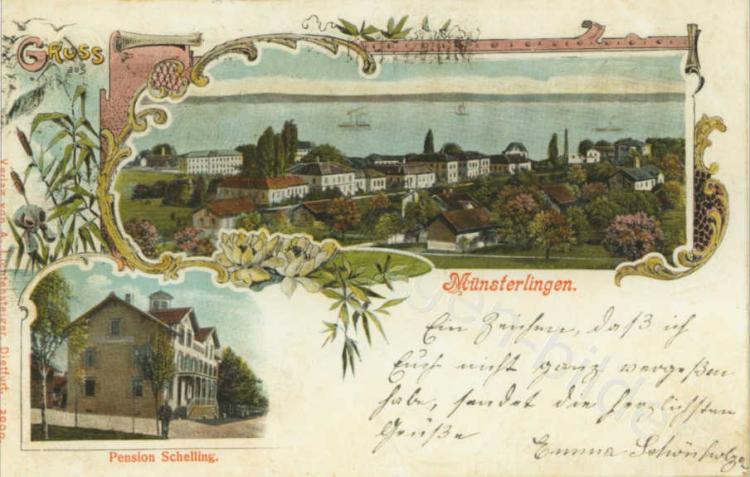 Gruss
aus
Münsterlingen.
Ein Zeichen, daß ich
Euch nicht ganz vergeßen
habe, sendet die herzlichsten
Grüße
Emma Schönholzer
Pension Schelling.
Verlag von A. Lichtensteiger, Dietfurt.